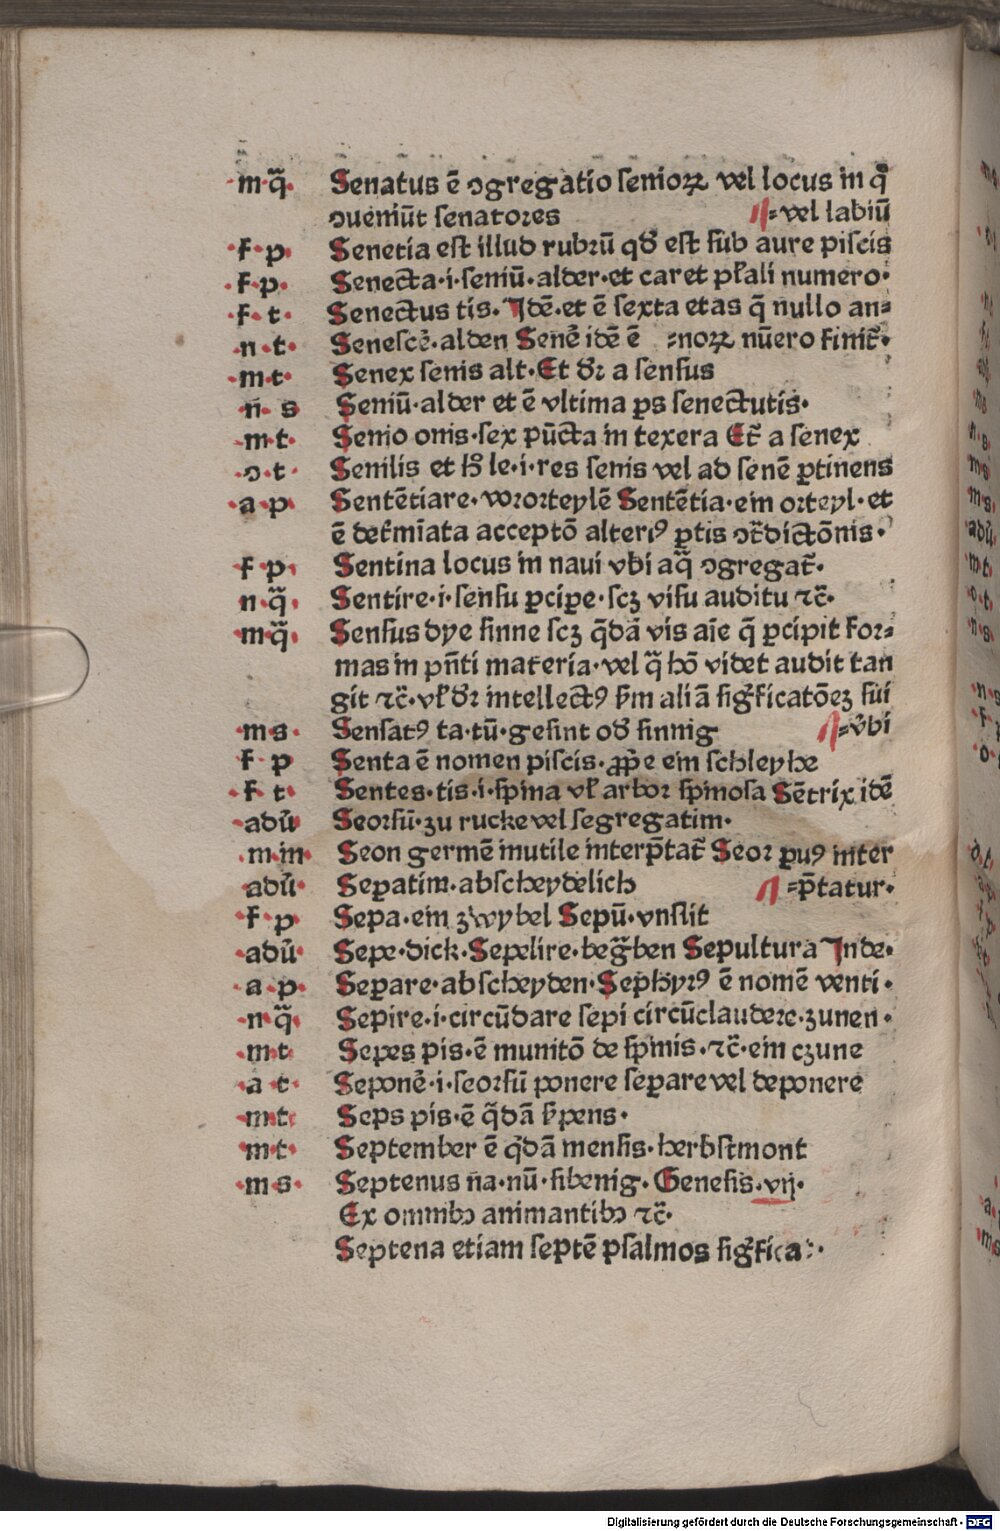 ·m·q̃· Senatus ē ɔgregatio senioꝝ vel locus in q̊
ɔueniūt senatores =vel labiū
·f·p· Senecia est illud rubrū qđ est sub aure piscis
·f·p· Senecta·i·seniū·alder·et caret pľali numero·
·f·t· Senectus tis·Idē·et ē sexta etas q̄ nullo an=
·n·t· Senescē·alden Senē idē ē =noꝝ nūero finit̃·
·m·t· Senex senis alt·Et dꝛ a sensus
·n· s Seniū·alder et ē vltima ꝑs senectutis·
·m·t· Senio onis·sex pūcta in texera Et̃ a senex
·ɔ·t· Senilis et ħ le·i·res senis vel ad senē ꝑtinens
·a·p· Sentētiare·vrorteylē Sentētia·ein orteyl·et
ē det̃mīata acceptō alteriꝰ ꝑtis ɔt̃dictōnis·
f·p· Sentina locus in naui vbi aq̄ ɔgregat̃·
n·q̃· Sentire·i·sensu ꝑcipe·scꝫ visu auditu ⁊c̃·
m·q̃· Sensus dye sinne scꝫ q̄dā vis aīe q̄ ꝑcipit for=
mas in pn̄ti materia·vel q̄ hō videt audit tan
git ⁊c̃·vľ dꝛ intellectꝰ ẜm aliā sigͥficatōeꝫ sui
·m s· Sensatꝰ ta·tū·gesint od sinnig =v̊bi
f· p Senta ē nomen piscis·ꝓpͥe ein schleyhe
·f· t· Sentes·tis·i·spina vľ arbor spinosa Sētrix idē
·adū· Seorsū·zu rucke vel segregatim·
·m·m· Seon germē inutile interp̄tat̃ Seor ꝑuꝰ inter
adū· Seꝑatim·abscheydelich =p̄tatur·
·f·p· Sepa·ein zwybel Sepū·vnslit
·adū· Sepe·dick·Sepelire·beg̃ben Sepultura Inde·
·a·p· Seꝑare·abscheyden·Sephyrꝰ ē nomē venti·
·n·q̃· Sepire·i·circūdare sepi circūclaudere·zunen·
·m·t· Sepes pis·ē munitō de spinis·⁊c̃·ein czune
·a·t· Seponē·i·seorsū ponere seꝑare vel deponere
·m·t· Seps pis·ē q̄dā ẜpens·
·m·t· September ē qͥdā mensis·herbstmont
·m·s· Septenus na·nū·sibenig·Genesis·vij·
Ex omnibꝰ animantibꝰ ⁊c̃·
Septena etiam septē psalmos sigͥfica·
Digitalisierung gefördert durch die Deutsche Forschungsgemeinschaft - DFG